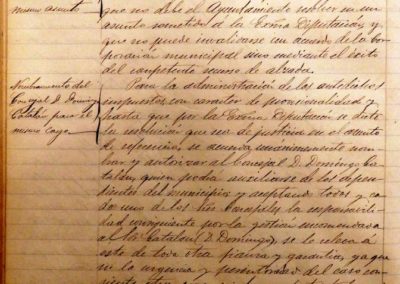 mismo asunto
que no debe el Ayuntamiento resolver en un
asunto sometido a la Excma Diputación, y
que no puede invalidarse un acuerdo de la Cor-
poración municipal sino mediante el éxito
del competente recurso de alzada.
Nombramiento del
Concejal D. Domingo
Catalán para el
mismo cargo
Para la administración de los antedichos
impuestos con carácter de provisionalidad y
hasta que por la Excma Diputación se dicte
la resolución que sea de justicia en el asunto
de referencia, se acuerda unánimemente nom-
brar y autorizar al Concejal D. Domingo Ca-
talán, quien podrá auxiliarse de los depen-
dientes del municipio y aceptando todos y ca-
da uno de los Sres Concejales la responsabili-
dad consiguiente por la gestión encomendada
al Sr. Catalan (D. Domingo), se le releva a
este de toda fianza y garantía, ya que
ni la urgencia y perentoriedad del caso con-